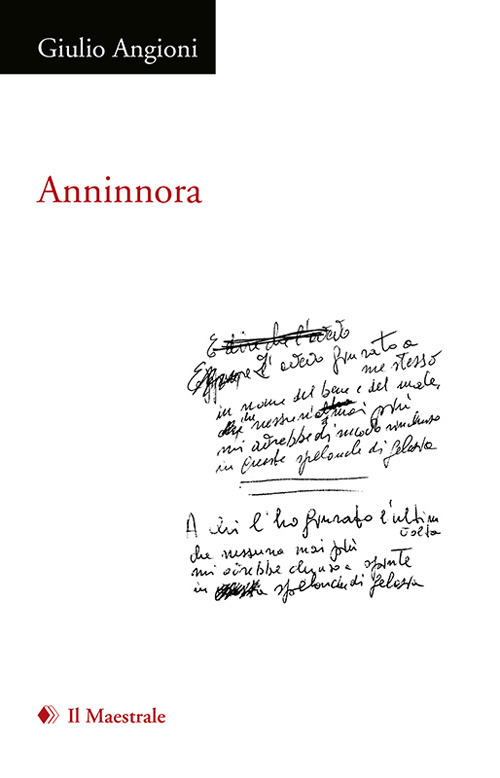 Giulio Angioni
Anninnora
E dire che l'avevo
Eppure l'avevo giurato a
me stesso
in nome del bene e del male,
che in nessun'a mai più
mi avrebbe di nuovo rinchiuso
in queste spelonche di gelosia
A chi l'ho giurato l'ultima
volta
che nessuna mai più
mi avrebbe chiuso a spinte
in spelonche di gelosia
Il Maestrale